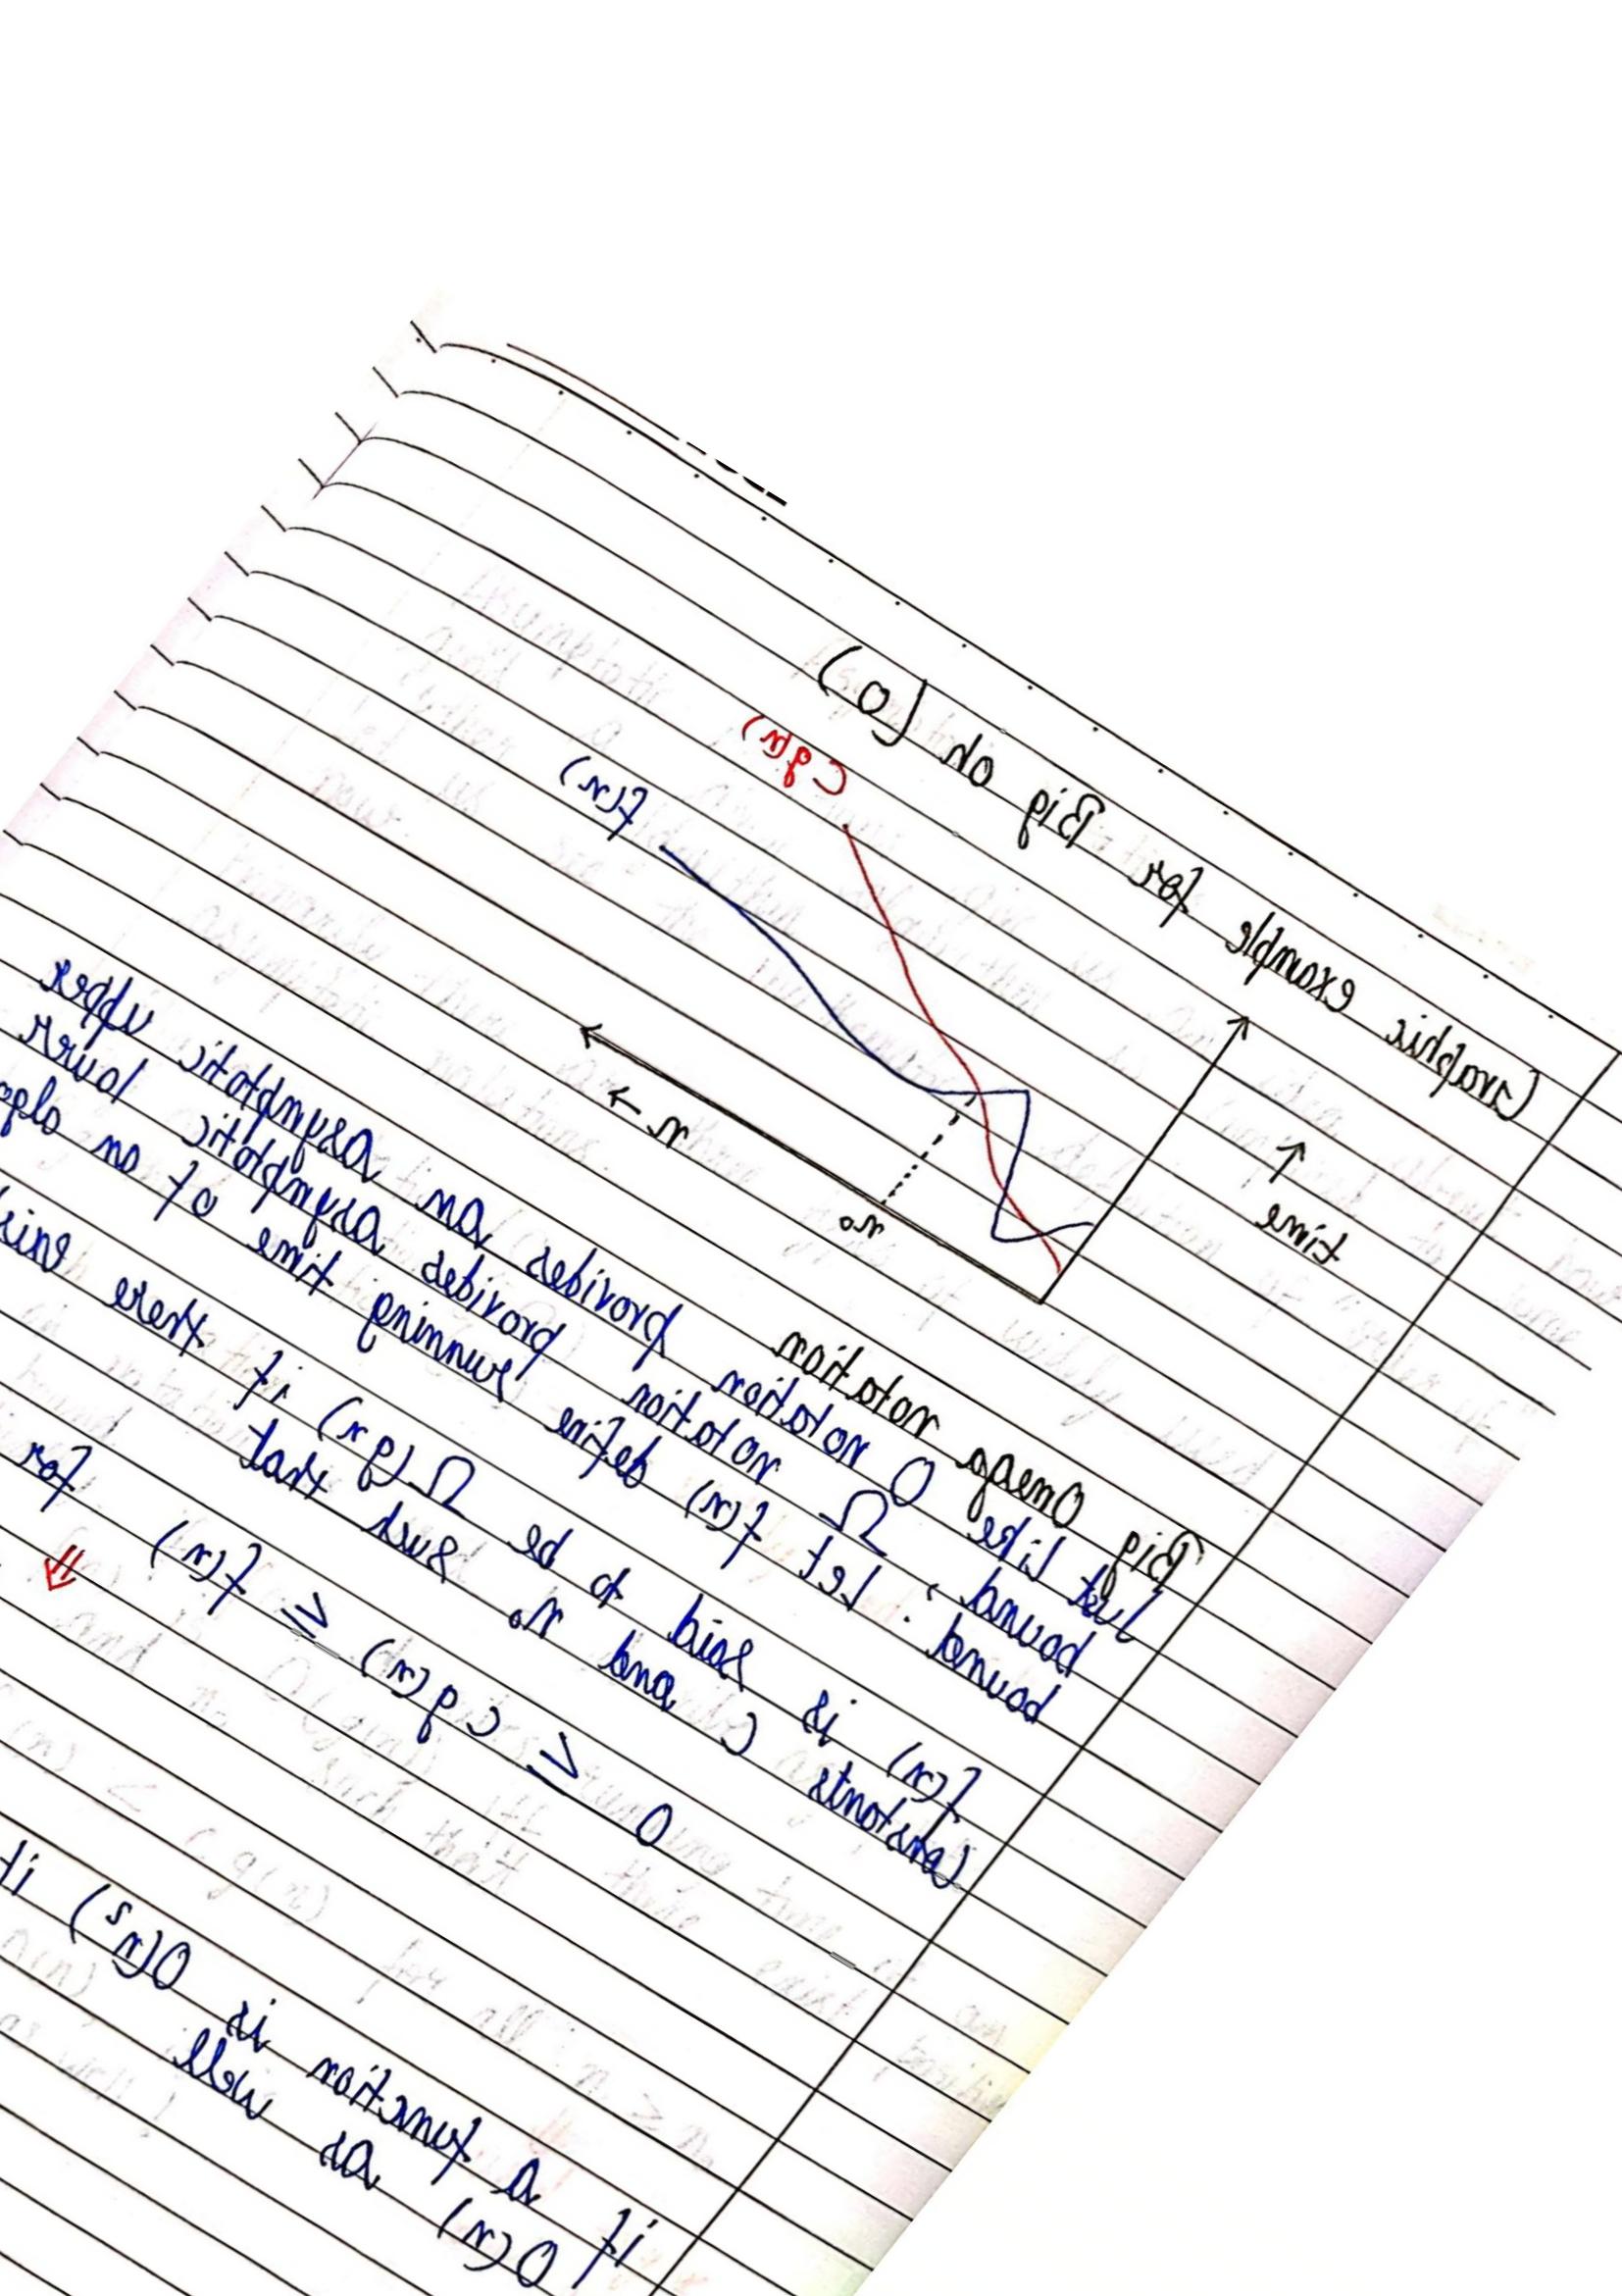 Graphic example for Big oh [O)
C g(n)
f(n)
time
→
n₀
n →
Big Omega notation
Just like O notation provides an asymptotic upper
bound, Ω notation provides asymptotic lower
bound. Let f(n) define running time of an algo
f(n) is said to be Ω(g n) if there
constants C and n₀ such that
0 ≤ c g(n) ≤ f(n) for
⇓
if a function is O(n²) it
O(n) as well